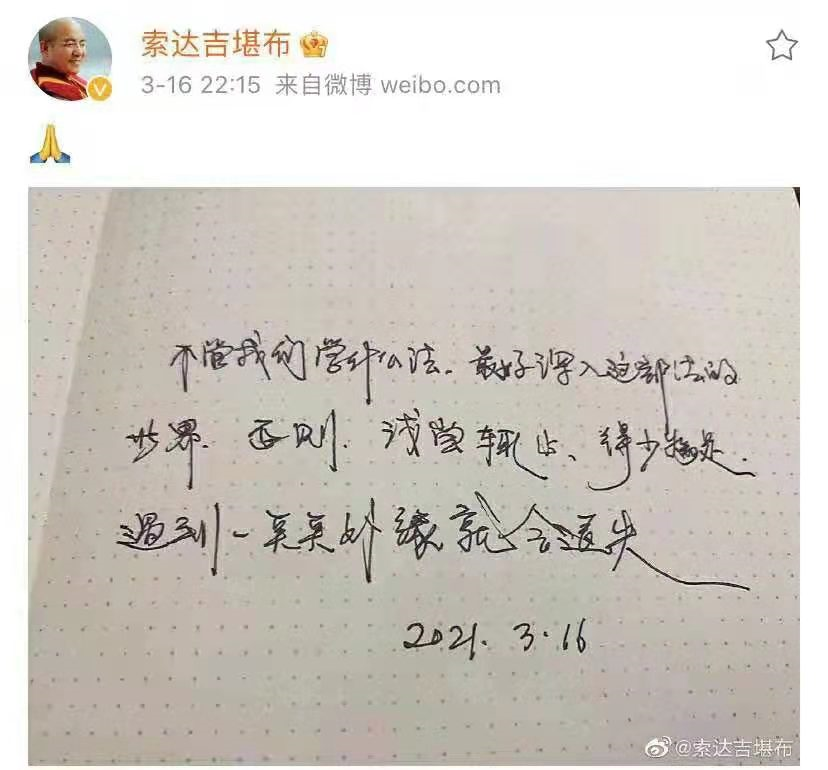 索达吉堪布
3-16 22:15 来自微博 weibo.com
不管我们学什么法，最好深入这部法的
世界，否则，浅尝辄止、得少为足，
遇到一点点外缘就会退失
2021.3.16
@索达吉堪布